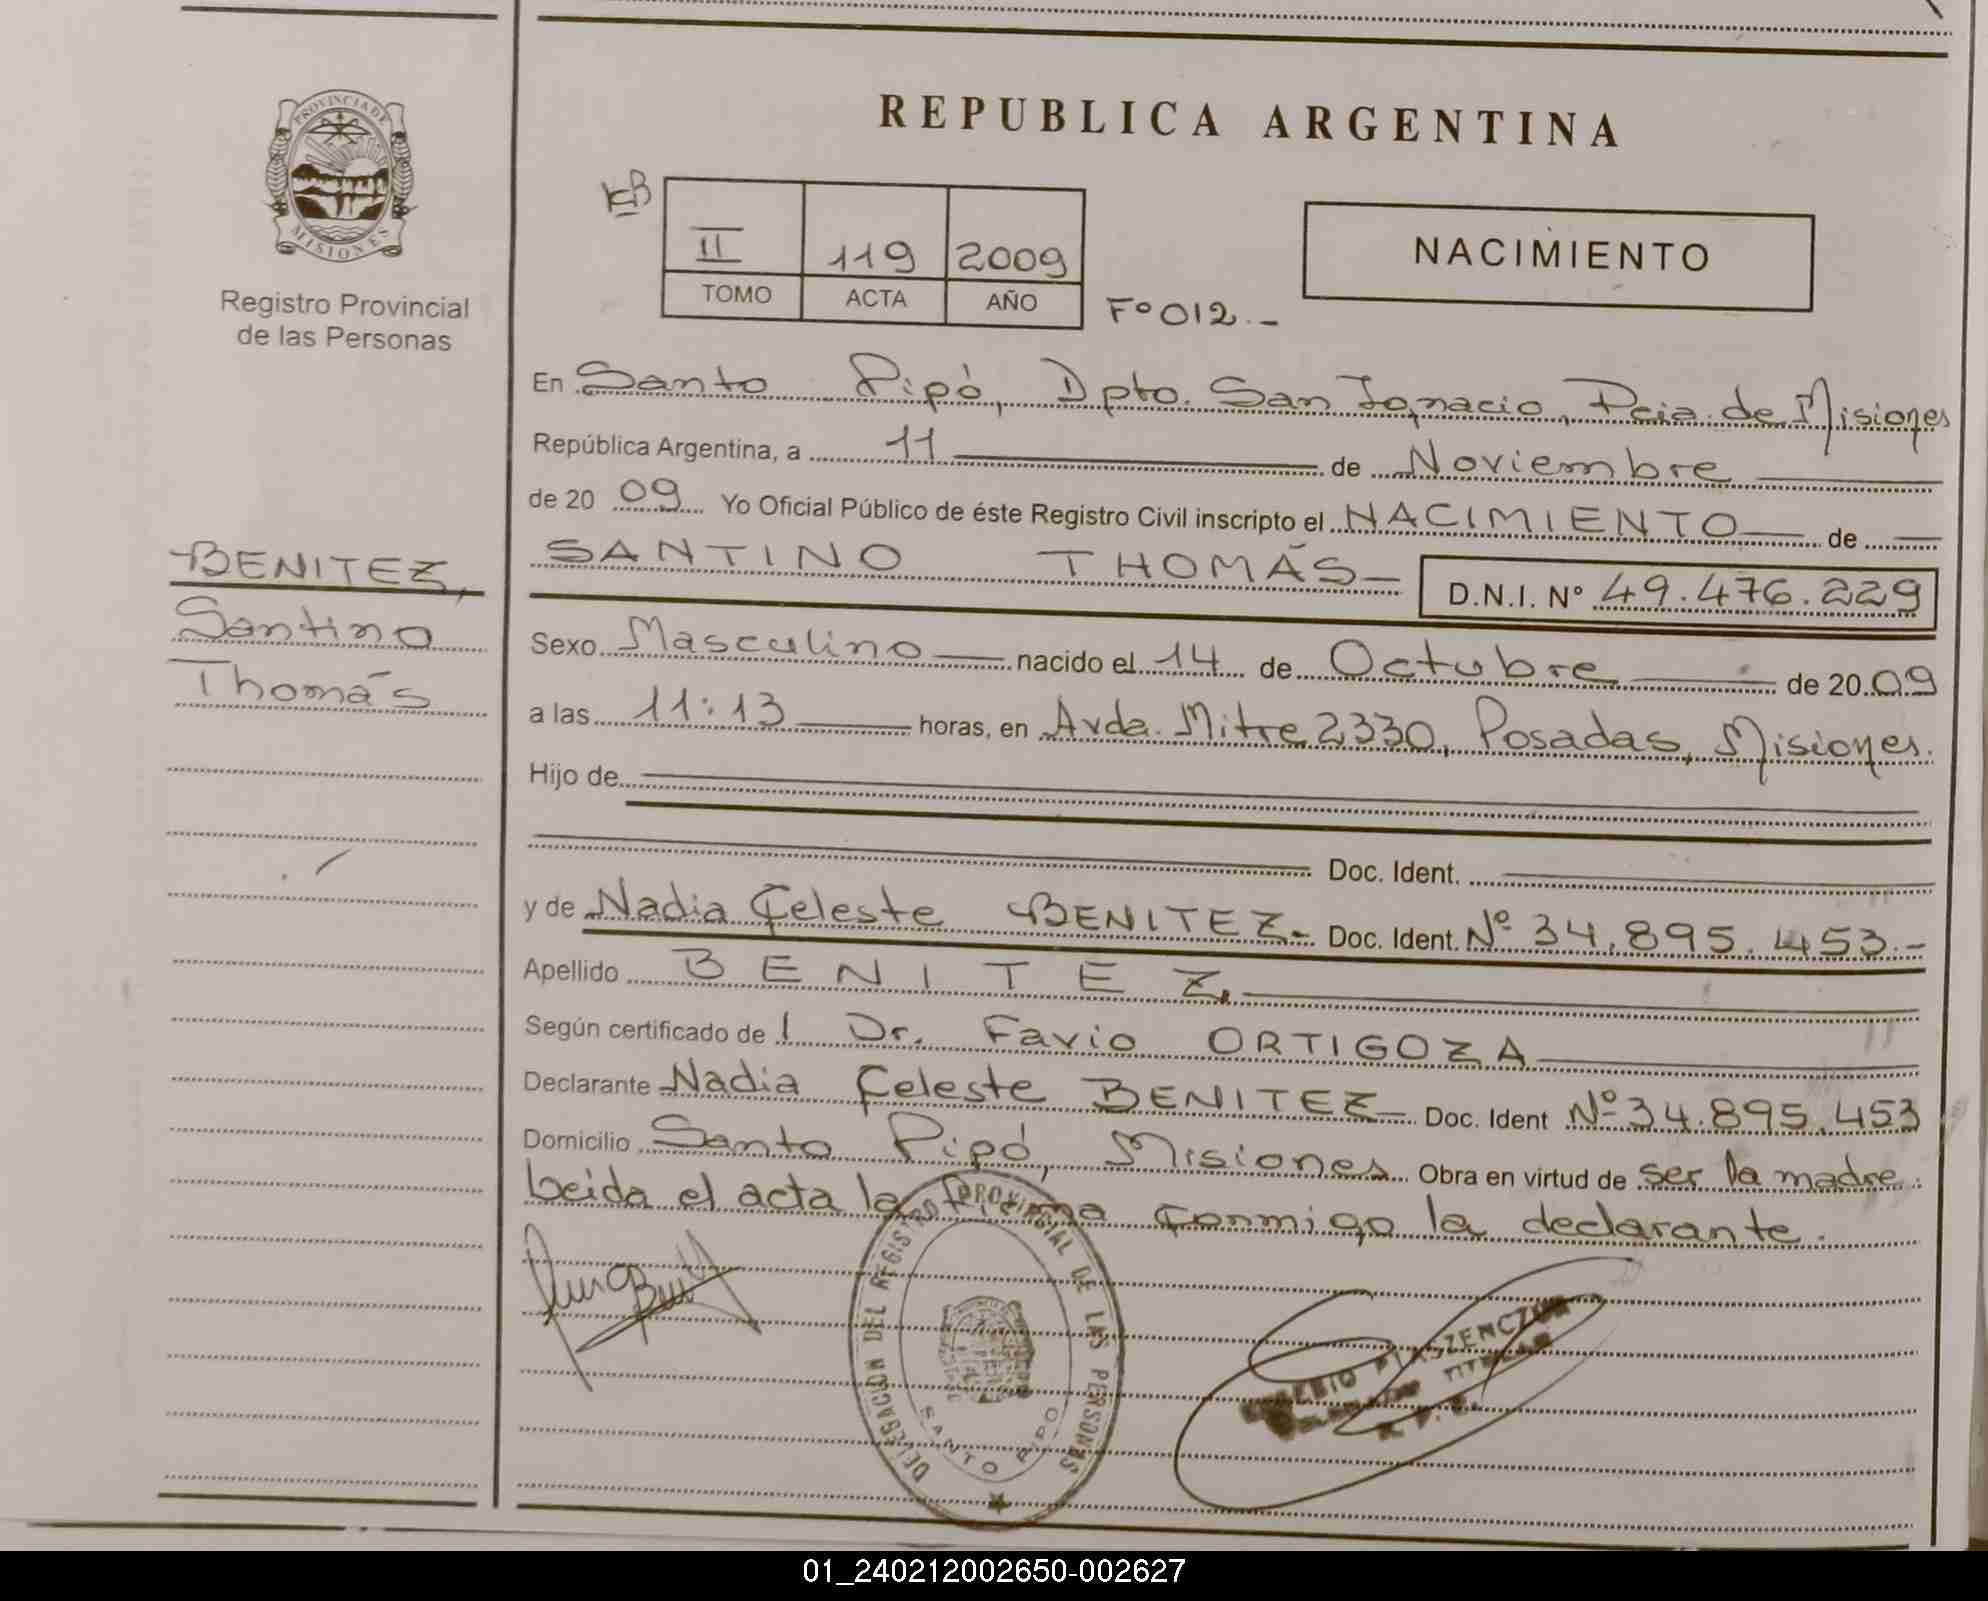 PROVINCIA DE
MISIONES
Registro Provincial
de las Personas
BENITEZ,
Santino
Thomás
REPUBLICA ARGENTINA
II 119 2009
TOMO ACTA AÑO
Fº 012.-
NACIMIENTO
En Santo Pipó, Dpto. San Ignacio, Pcia. de Misiones
República Argentina, a 11 de Noviembre
de 2009 Yo Oficial Público de éste Registro Civil inscripto el NACIMIENTO de
SANTINO THOMÁS D.N.I. Nº 49.476.229
Sexo Masculino nacido el 14 de Octubre de 2009
a las 11:13 horas, en Avda. Mitre 2330, Posadas, Misiones.
Hijo de
Doc. Ident.
y de Nadia Celeste BENITEZ.- Doc. Ident. Nº 34.895.453.-
Apellido BENITEZ.
Según certificado de l Dr. Favio ORTIGOZA
Declarante Nadia Celeste BENITEZ Doc. Ident Nº 34.895.453
Domicilio Santo Pipó, Misiones Obra en virtud de ser la madre.
Leida el acta la firma conmigo la declarante.
DELEGACION DEL REGISTRO PROVINCIAL DE LAS PERSONAS
SANTO PIPO
TITULAR
01_240212002650-002627